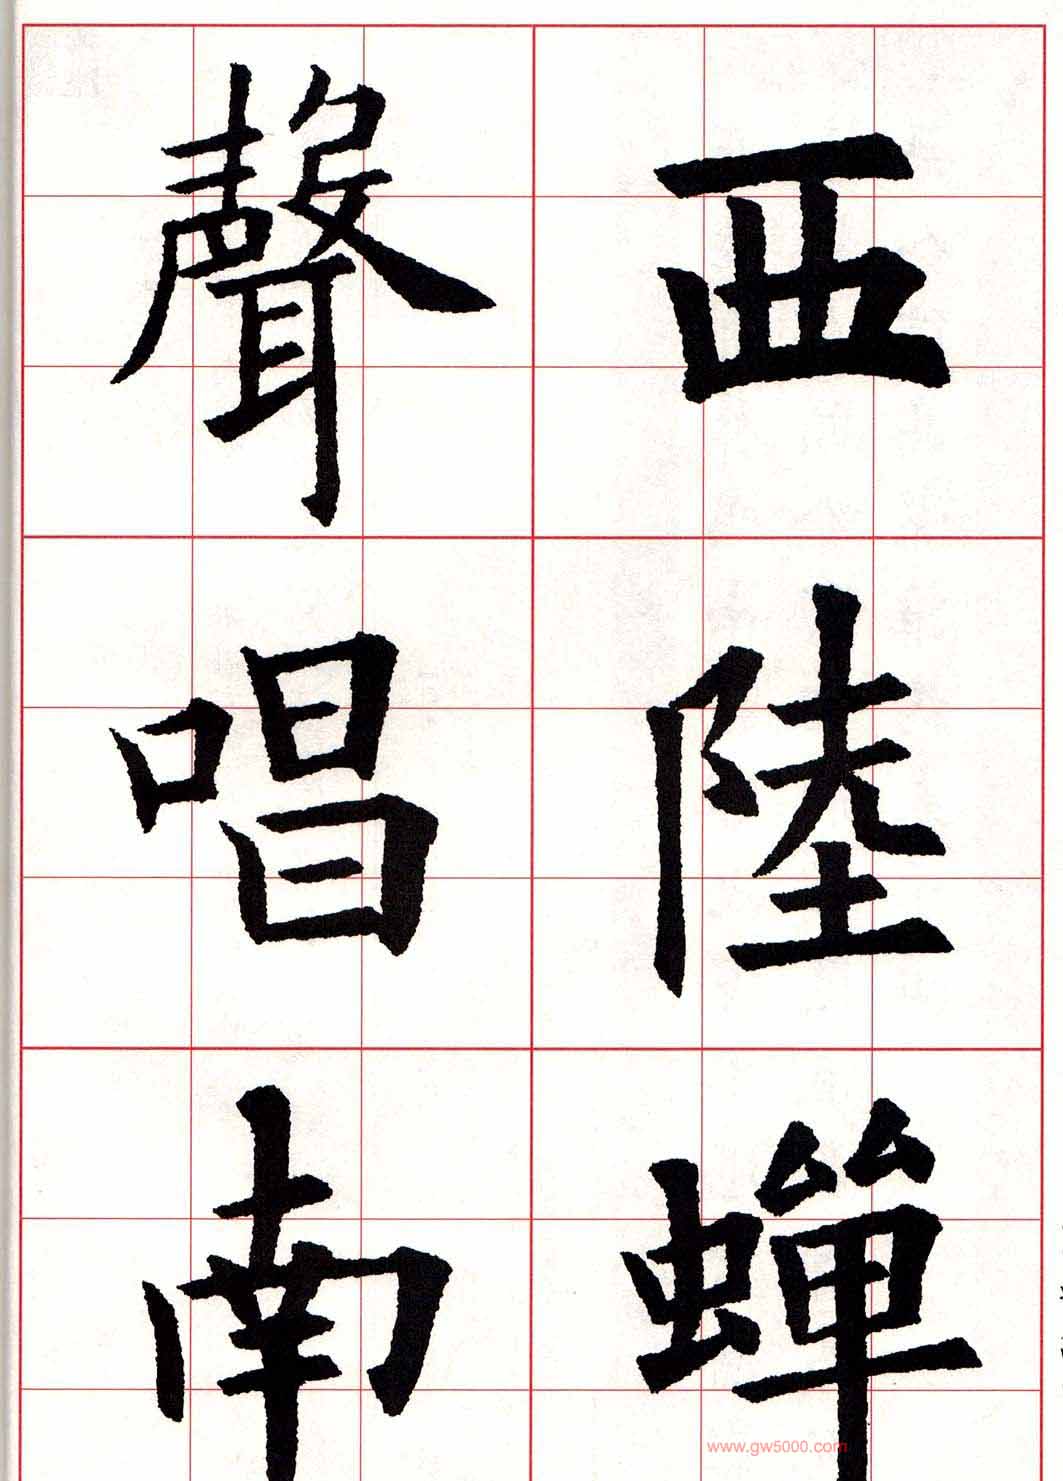 西陸蟬
聲唱南
www.gw5000.com